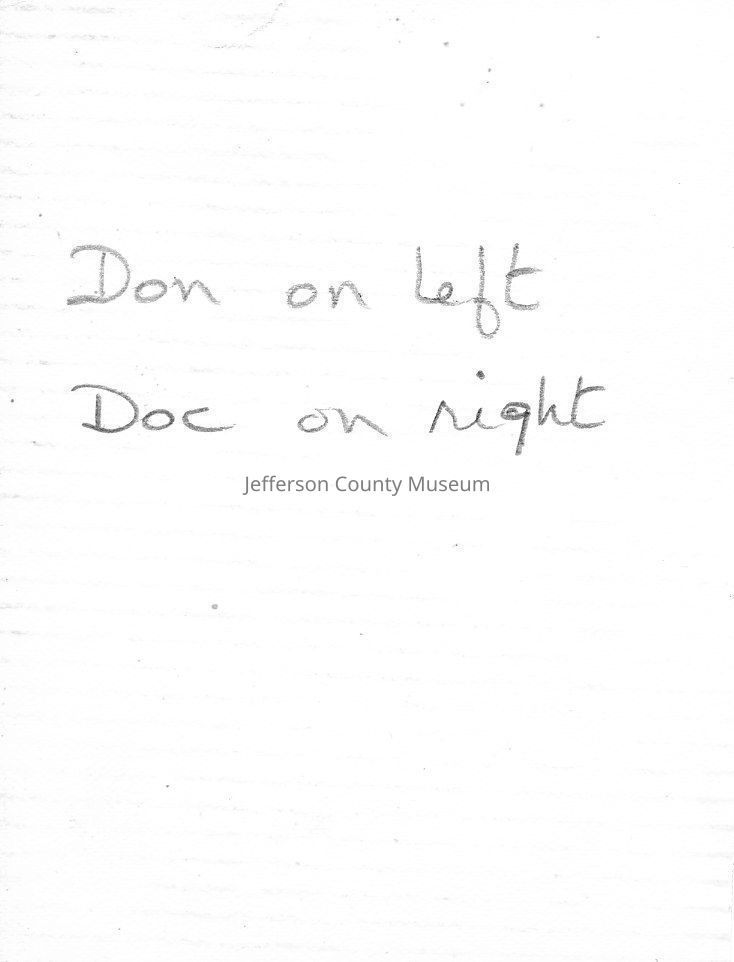 Don on left
Doc on right
Jefferson County Museum